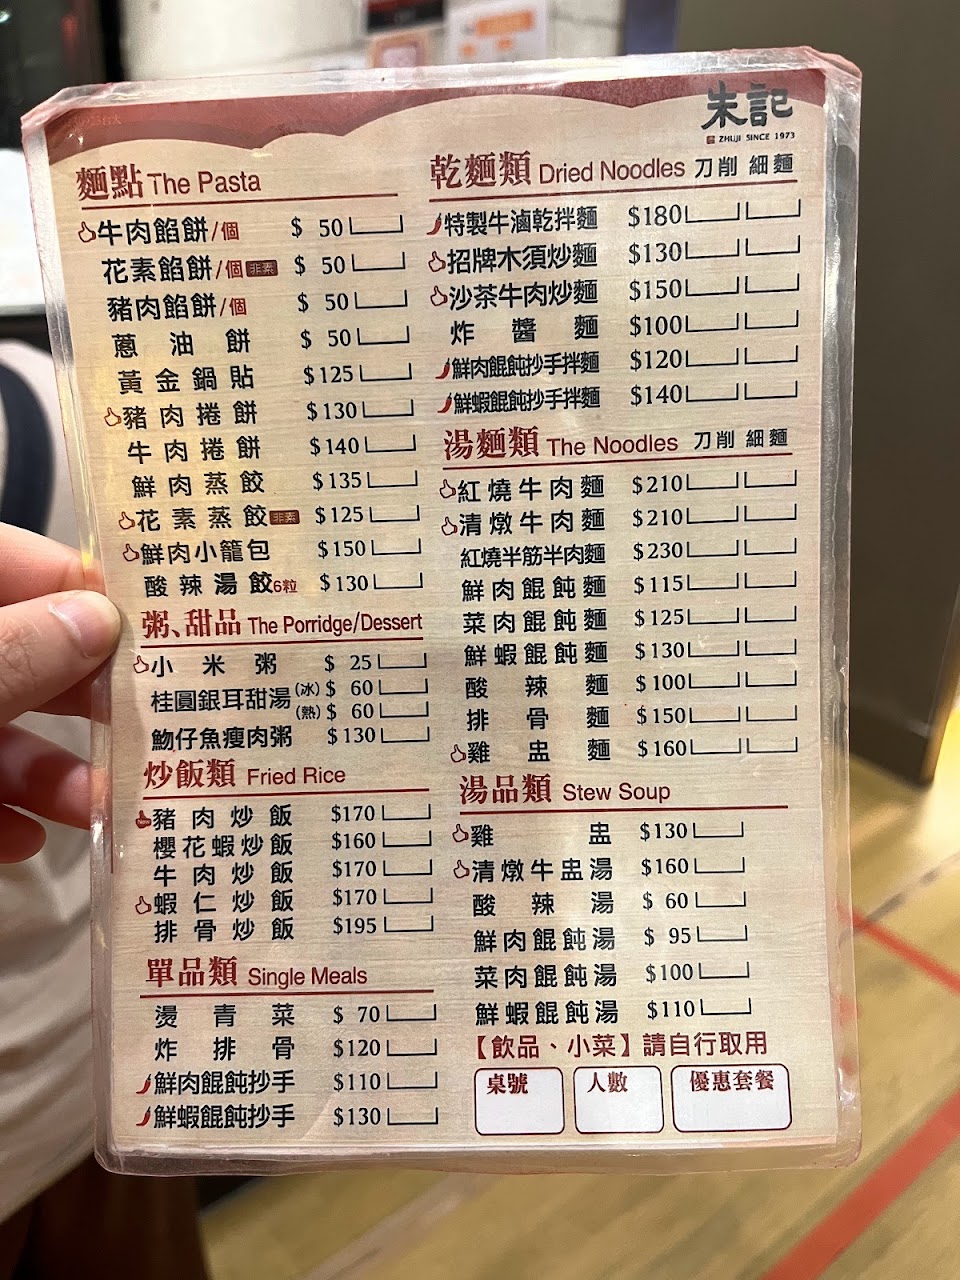 朱記
ZHUJI SINCE 1973
麵點 The Pasta
牛肉餡餅/個 $ 50
花素餡餅/個 非素 $ 50
豬肉餡餅/個 $ 50
蔥油餅 $ 50
黃金鍋貼 $125
豬肉捲餅 $130
牛肉捲餅 $140
鮮肉蒸餃 $135
花素蒸餃 非素 $125
鮮肉小籠包 $150
酸辣湯餃6粒 $130
粥、甜品 The Porridge/Dessert
小米粥 $ 25
桂圓銀耳甜湯 (冰) $ 60
(熱) $ 60
魩仔魚瘦肉粥 $130
炒飯類 Fried Rice
豬肉炒飯 $170
櫻花蝦炒飯 $160
牛肉炒飯 $170
蝦仁炒飯 $170
排骨炒飯 $195
單品類 Single Meals
燙青菜 $ 70
炸排骨 $120
鮮肉餛飩抄手 $110
鮮蝦餛飩抄手 $130
乾麵類 Dried Noodles 刀削 細麵
特製牛滷乾拌麵 $180
招牌木須炒麵 $130
沙茶牛肉炒麵 $150
炸醬麵 $100
鮮肉餛飩抄手拌麵 $120
鮮蝦餛飩抄手拌麵 $140
湯麵類 The Noodles 刀削 細麵
紅燒牛肉麵 $210
清燉牛肉麵 $210
紅燒半筋半肉麵 $230
鮮肉餛飩麵 $115
菜肉餛飩麵 $125
鮮蝦餛飩麵 $130
酸辣麵 $100
排骨麵 $150
雞盅麵 $160
湯品類 Stew Soup
雞盅 $130
清燉牛盅湯 $160
酸辣湯 $ 60
鮮肉餛飩湯 $ 95
菜肉餛飩湯 $100
鮮蝦餛飩湯 $110
【飲品、小菜】請自行取用
桌號 人數 優惠套餐